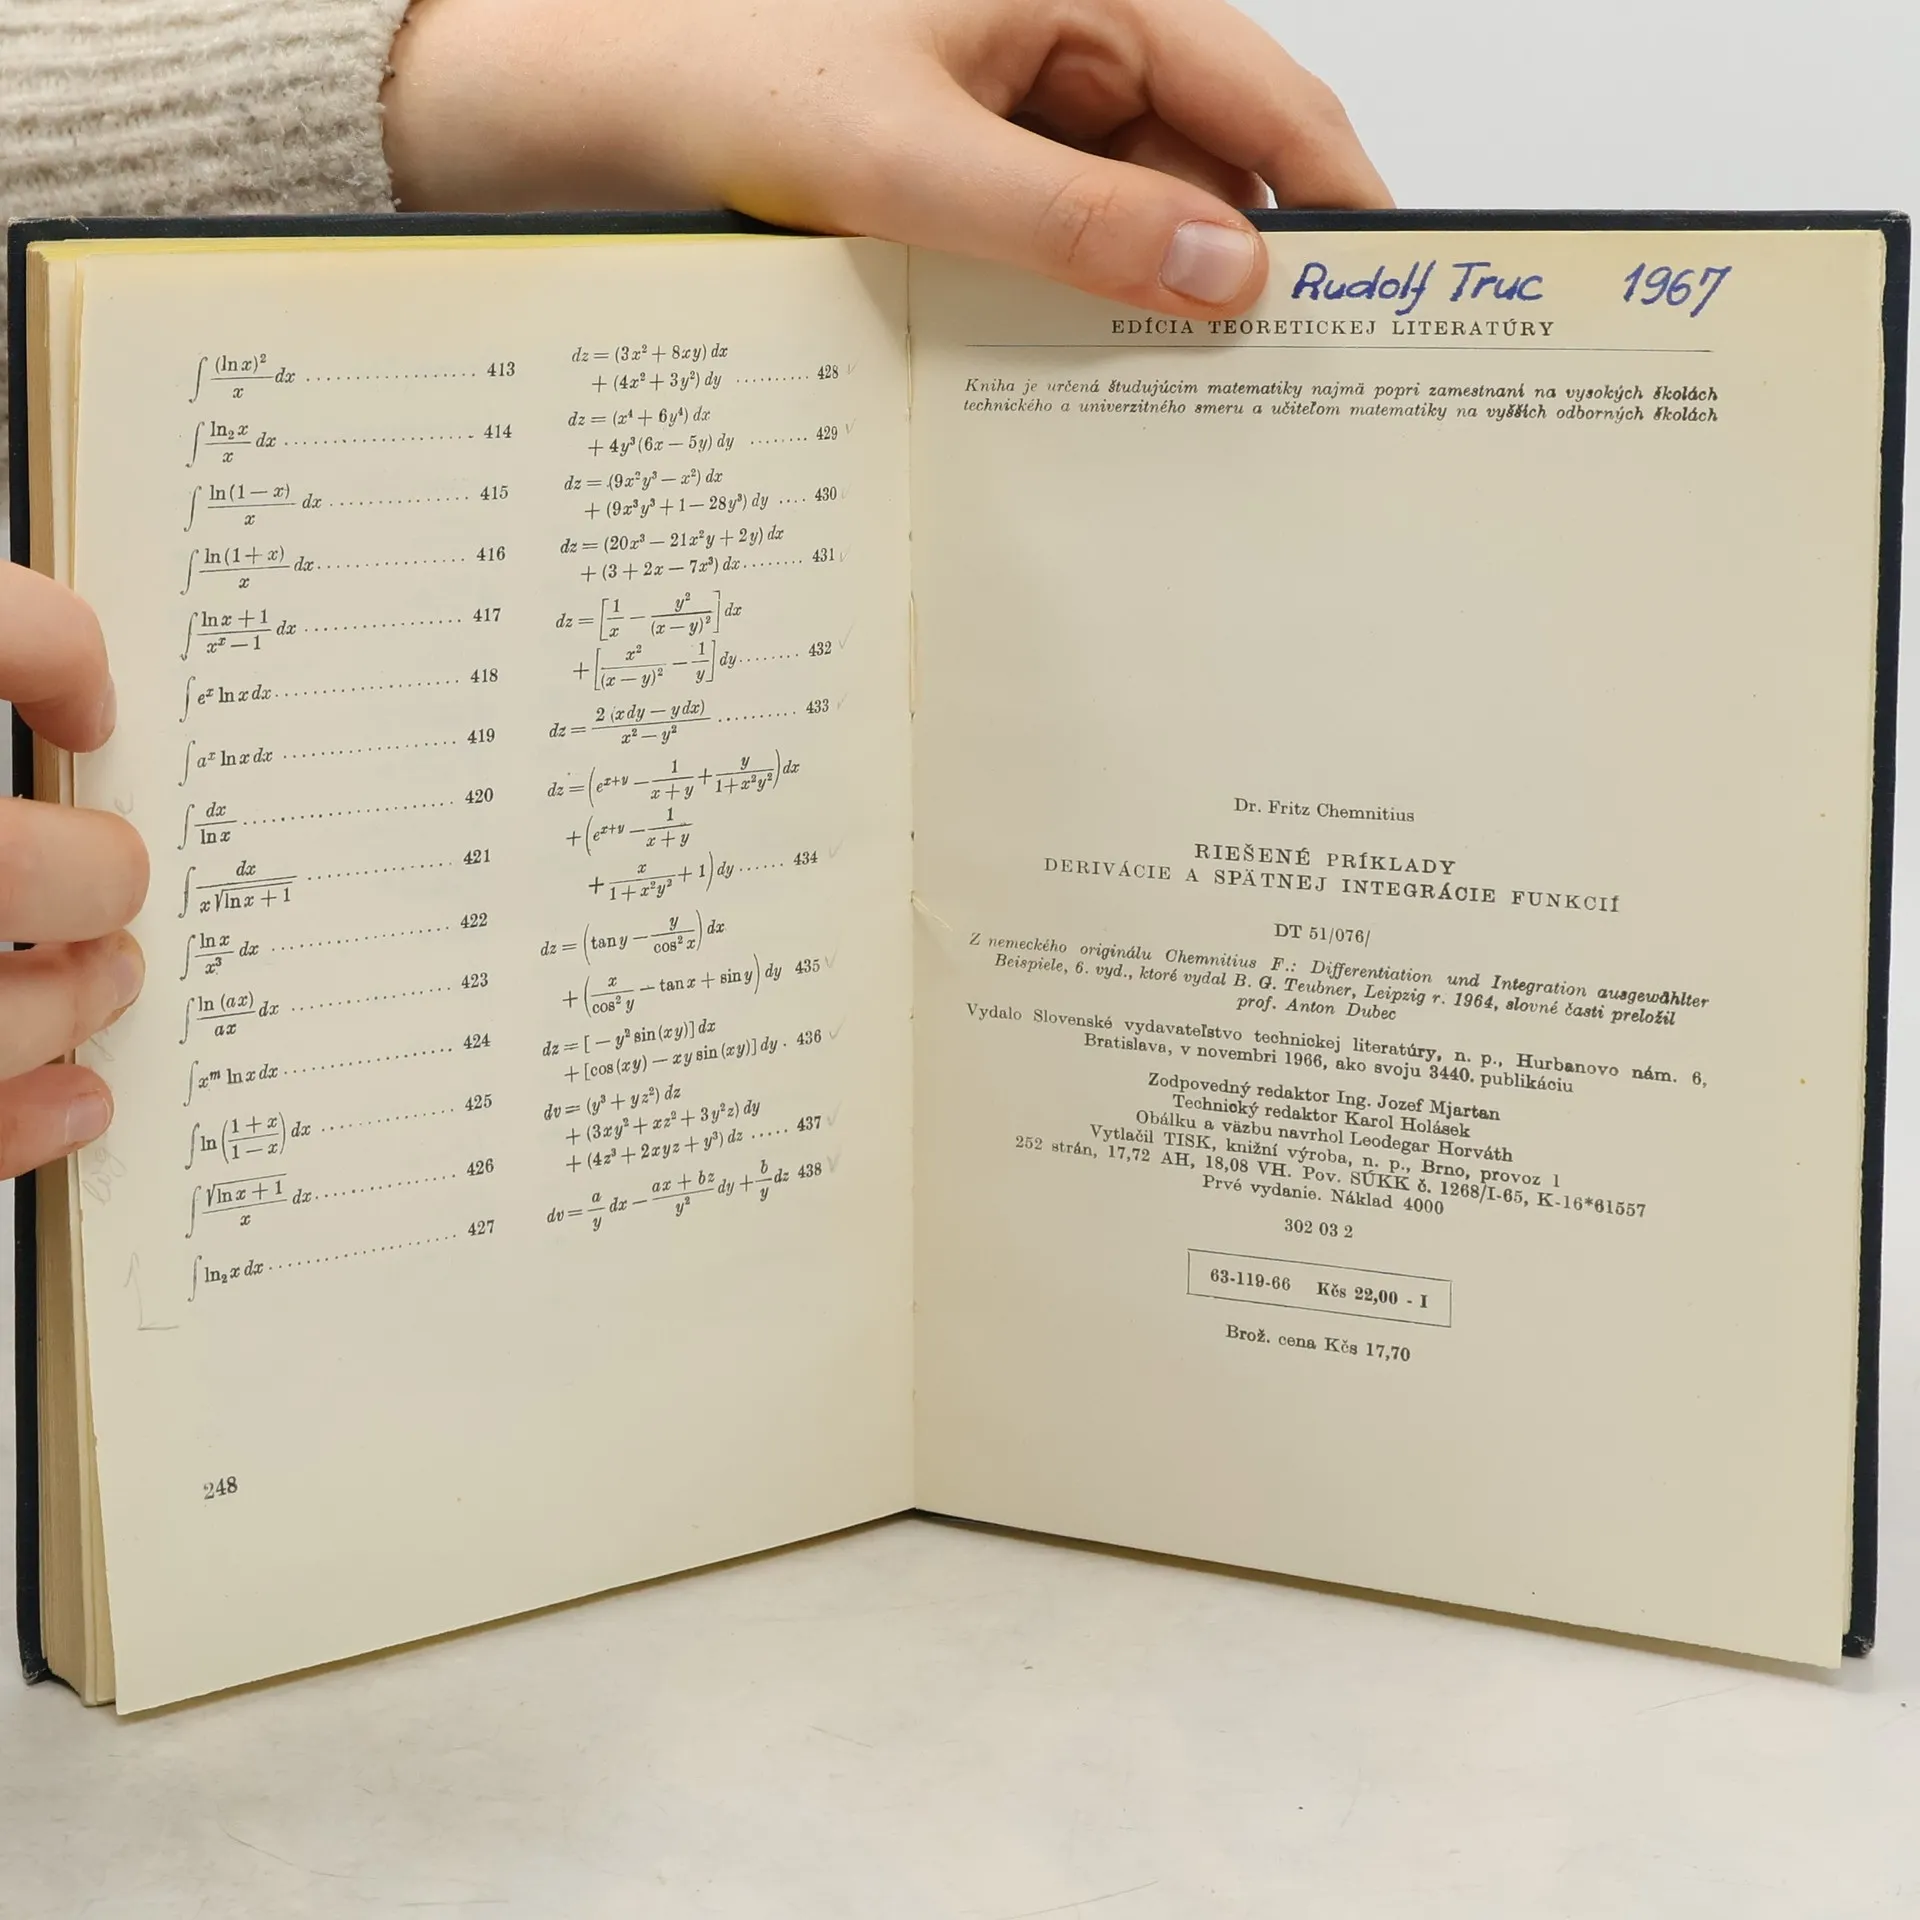 ∫ (ln x)²/x dx .................. 413
∫ ln₂ x/x dx .................... 414
∫ ln (1 − x)/x dx .............. 415
∫ ln (1 + x)/x dx ............... 416
∫ ln x + 1/xˣ − 1 dx ................ 417
∫ eˣ ln x dx ................... 418
∫ aˣ ln x dx .................. 419
∫ dx/ln x ...................... 420
∫ dx/x √ln x + 1 ............... 421
∫ ln x/x³ dx .................. 422
∫ ln (ax)/ax dx ................ 423
∫ xᵐ ln x dx .................. 424
∫ ln (1 + x/1 − x) dx ............. 425
∫ √ln x + 1/x dx .............. 426
∫ ln₂ x dx ..................... 427
dz = (3x² + 8xy) dx
+ (4x² + 3y²) dy .......... 428
dz = (x⁴ + 6y⁴) dx
+ 4y³ (6x − 5y) dy ........ 429
dz = (9x²y³ − x²) dx
+ (9x³y³ + 1 − 28y³) dy .... 430
dz = (20x³ − 21x²y + 2y) dx
+ (3 + 2x − 7x³) dx ........ 431
dz = [1/x − y²/(x − y)²] dx
+ [x²/(x − y)² − 1/y] dy ........ 432
dz = 2 (x dy − y dx)/x² − y² .......... 433
dz = (eˣ⁺ʸ − 1/x + y + y/1 + x²y²) dx
+ (eˣ⁺ʸ − 1/x + y
+ x/1 + x²y² + 1) dy ...... 434
dz = (tan y − y/cos² x) dx
+ (x/cos² y − tan x + sin y) dy 435
dz = [− y² sin (xy)] dx
+ [cos (xy) − xy sin (xy)] dy . 436
dv = (y³ + yz²) dz
+ (3xy² + xz² + 3y²z) dy
+ (4z³ + 2xyz + y³) dz ..... 437
dv = a/y dx − ax + bz/y² dy + b/y dz 438
248
Rudolf Truc 1967
EDÍCIA TEORETICKEJ LITERATÚRY
Kniha je určená študujúcim matematiky najmä popri zamestnaní na vysokých školách
technického a univerzitného smeru a učiteľom matematiky na vyšších odborných školách
Dr. Fritz Chemnitius
RIEŠENÉ PRÍKLADY
DERIVÁCIE A SPÄTNEJ INTEGRÁCIE FUNKCIÍ
DT 51/076/
Z nemeckého originálu Chemnitius F.: Differentiation und Integration ausgewählter
Beispiele, 6. vyd., ktoré vydal B. G. Teubner, Leipzig r. 1964, slovné časti preložil
prof. Anton Dubec
Vydalo Slovenské vydavateľstvo technickej literatúry, n. p., Hurbanovo nám. 6,
Bratislava, v novembri 1966, ako svoju 3440. publikáciu
Zodpovedný redaktor Ing. Jozef Mjartan
Technický redaktor Karol Holásek
Obálku a väzbu navrhol Leodegar Horváth
Vytlačil TISK, knižní výroba, n. p., Brno, provoz 1
252 strán, 17,72 AH, 18,08 VH. Pov. SÚKK č. 1268/I-65, K-16*61557
Prvé vydanie. Náklad 4000
302 03 2
63-119-66 Kčs 22,00 - I
Brož. cena Kčs 17,70